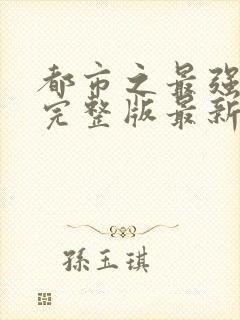 都市之最强
完整版最新
孫玉琪